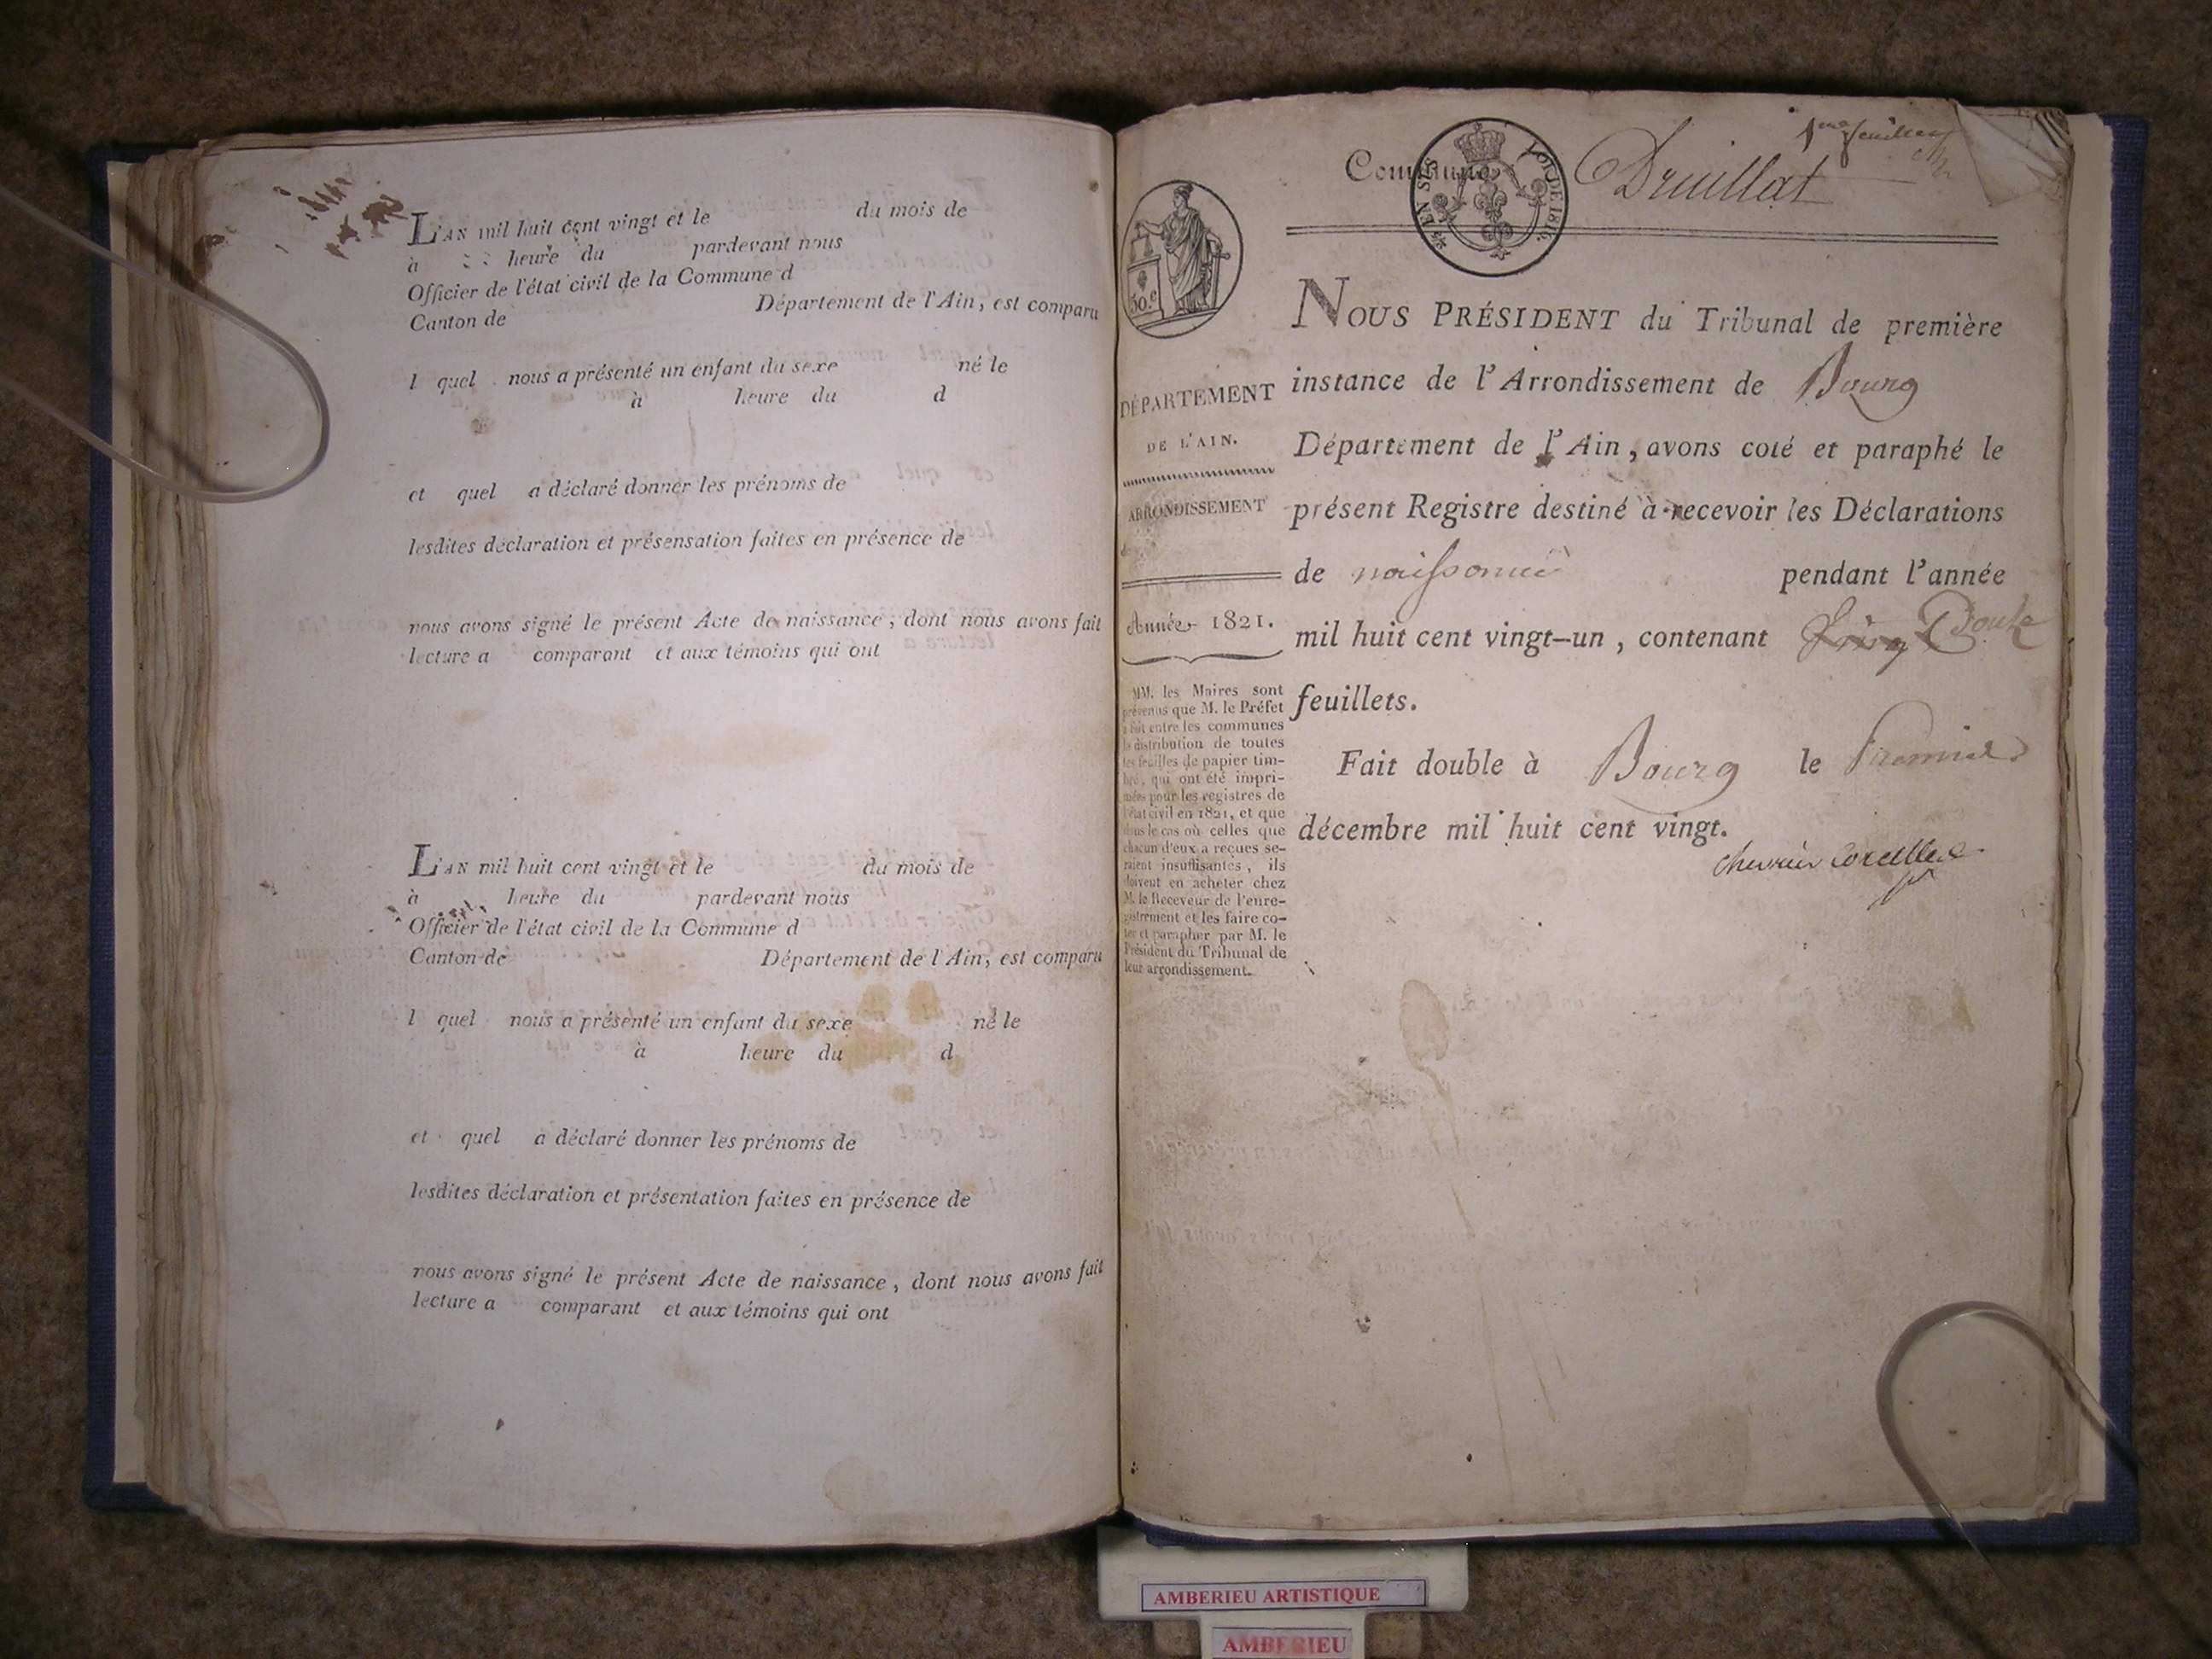 L'AN mil huit cent vingt et le du mois de
à heure du pardevant nous
Officier de l'état civil de la Commune d
Canton de Département de l'Ain, est comparu
l quel nous a présenté un enfant du sexe né le
à heure du d
et quel a déclaré donner les prénoms de
lesdites déclaration et présensation faites en présence de
nous avons signé le présent Acte de naissance, dont nous avons fait
lecture a comparant et aux témoins qui ont
L'AN mil huit cent vingt et le du mois de
à heure du pardevant nous
Officier de l'état civil de la Commune d
Canton de Département de l'Ain, est comparu
l quel nous a présenté un enfant du sexe né le
à heure du d
et quel a déclaré donner les prénoms de
lesdites déclaration et présentation faites en présence de
nous avons signé le présent Acte de naissance, dont nous avons fait
lecture a comparant et aux témoins qui ont
1er feuillet
Commune Druillat
LOI DE 1816.
EN SUS
50.c
DÉPARTEMENT
DE L'AIN.
ARRONDISSEMENT
de
Année 1821.
MM. les Maires sont
prévenus que M. le Préfet
a fait entre les communes
la distribution de toutes
les feuilles de papier tim-
bré, qui ont été impri-
mées pour les registres de
l'état civil en 1821, et que
dans le cas où celles que
chacun d'eux a reçues se-
raient insuffisantes, ils
doivent en acheter chez
M. le Receveur de l'enre-
gistrement et les faire co-
ter et parapher par M. le
Président du Tribunal de
leur arrondissement.
NOUS PRÉSIDENT du Tribunal de première
instance de l'Arrondissement de Bourg
Département de l'Ain, avons coté et paraphé le
présent Registre destiné à recevoir les Déclarations
de naissance pendant l'année
mil huit cent vingt-un, contenant Douze
feuillets.
Fait double à Bourg le Premier
décembre mil huit cent vingt.
Chevrier Corcelles
AMBERIEU ARTISTIQUE
AMBERIEU